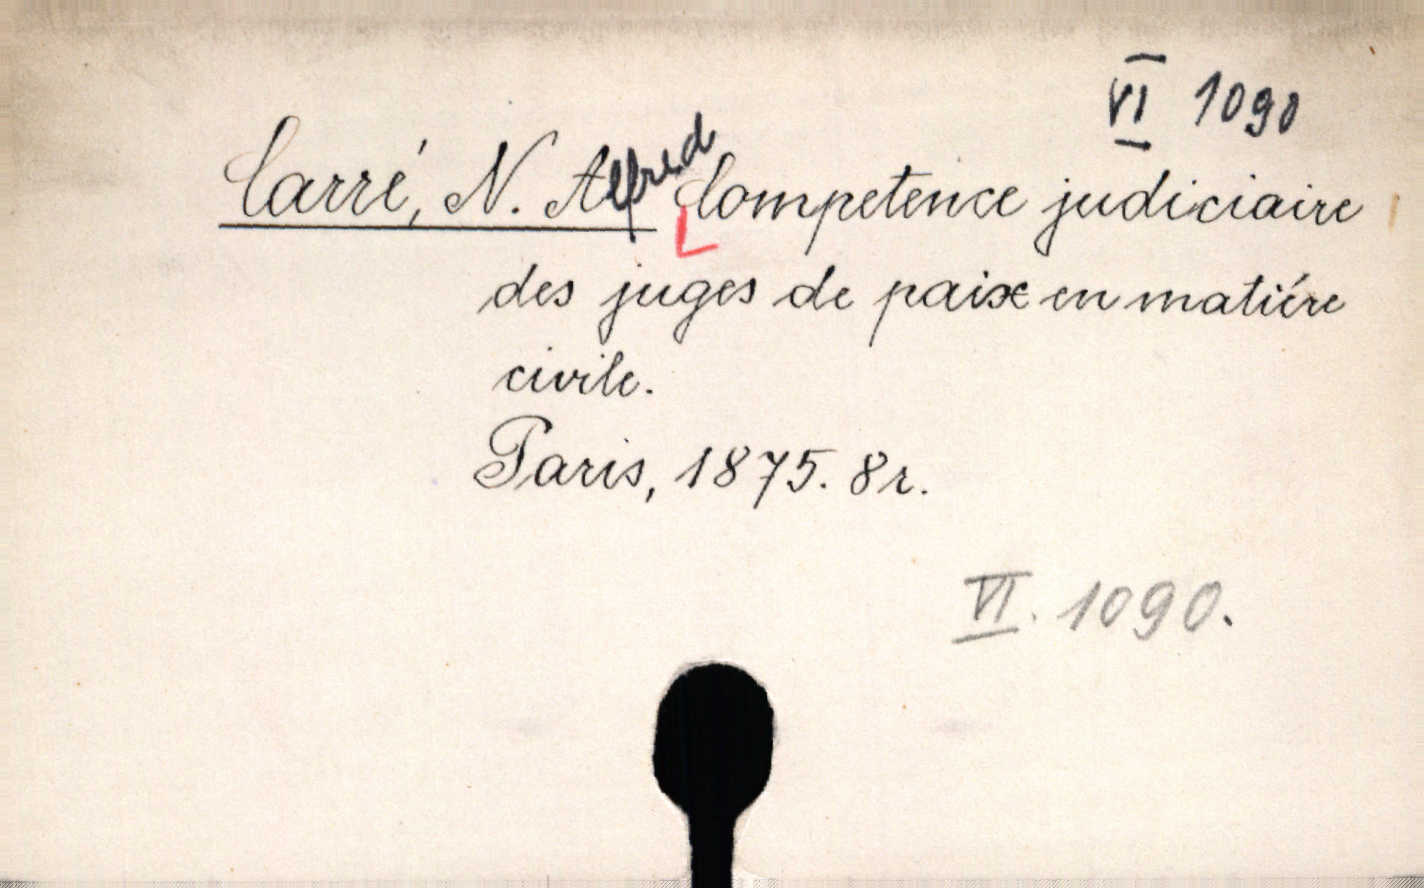 VI 1090
Carré, N. Alfred Competence judiciaire
des juges de paix en matiére
civile.
Paris, 1875. 8r.
VI. 1090.